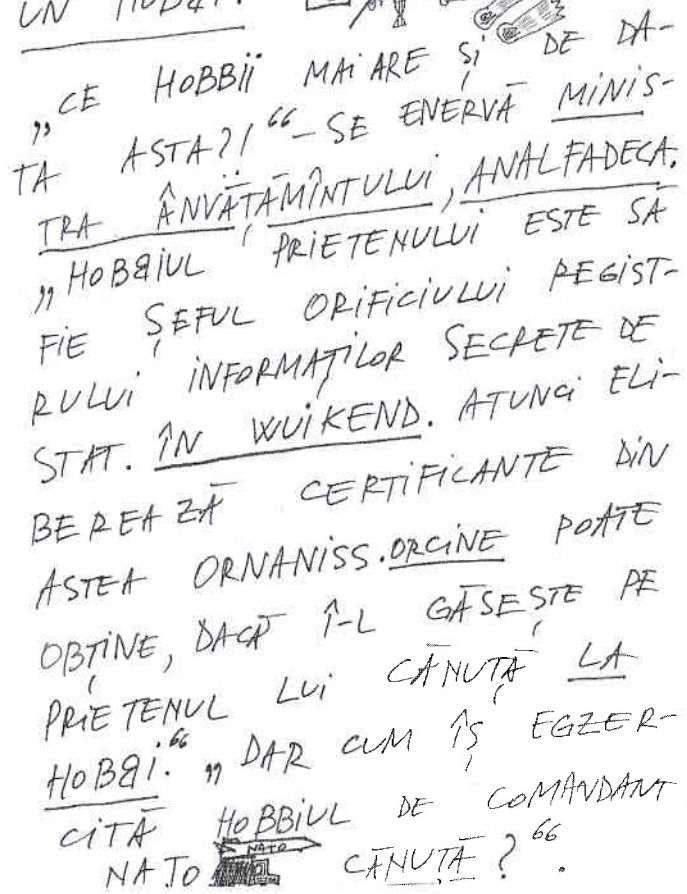 UN HOBBI.
„CE HOBBII MAI ARE ȘI DE DA-
TA ASTA?!“ – SE ENERVĂ MINIS-
TRA ÂNVĂȚĂMÎNTULUI, ANALFADECA.
„HOBBIUL PRIETENULUI ESTE SĂ
FIE ȘEFUL ORIFICIULUI REGIST-
RULUI INFORMAȚILOR SECRETE DE
STAT. ÎN WUIKEND. ATUNCI ELI-
BEREAZĂ CERTIFICANTE DIN
ASTEA ORNANISS. ORCINE POATE
OBȚINE, DACĂ Î-L GĂSEȘTE PE
PRIETENUL LUI CĂNUȚĂ LA
HOBBI.“ „DAR CUM ÎȘ EGZER-
CITĂ HOBBIUL DE COMANDANT
NATO NATO CĂNUȚĂ?“.